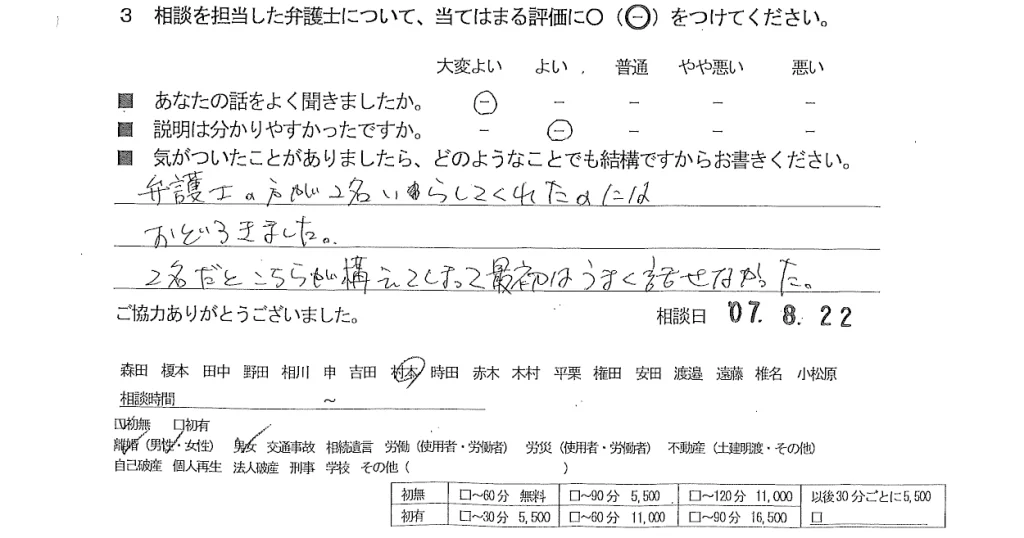 3 相談を担当した弁護士について、当てはまる評価に○(㊀)をつけてください。
大変よい よい 普通 やや悪い 悪い
■ あなたの話をよく聞きましたか。 ㊀ − − − −
■ 説明は分かりやすかったですか。 − ㊀ − − −
■ 気がついたことがありましたら、どのようなことでも結構ですからお書きください。
弁護士の方が2名いらしてくれたのには
おどろきました。
2名だとこちらが構えてしまって最初はうまく話せなかった。
ご協力ありがとうございました。 相談日 '07. 8. 22
森田 榎本 田中 野田 相川 申 吉田 村本 時田 赤木 木村 平栗 権田 安田 渡邉 遠藤 椎名 小松原
相談時間 ~
☑初無 □初有
離婚(男性・女性) 男女 交通事故 相続遺言 労働(使用者・労働者) 労災(使用者・労働者) 不動産(土建明渡・その他)
自己破産 個人再生 法人破産 刑事 学校 その他( )
初無 □~60分 無料 □~90分 5,500 □~120分 11,000 以後30分ごとに5,500
初有 □~30分 5,500 □~60分 11,000 □~90分 16,500 □